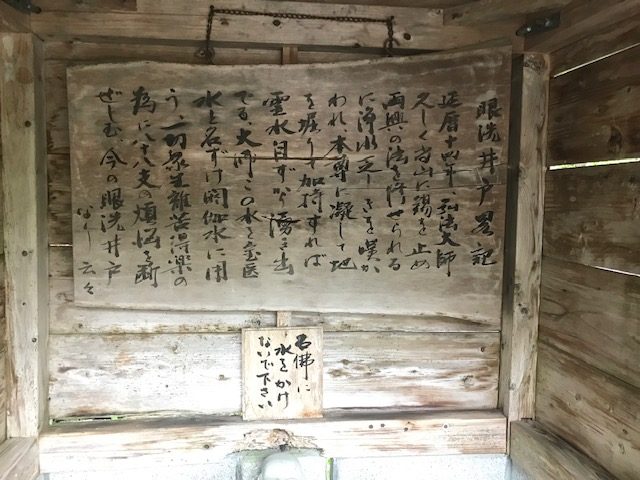 眼洗井戸畧記
延暦十四年、弘法大師
久しく当山に錫を止め
両興の法を修せられる
に浄水乏しきを嘆か
われ本尊に凝して地
を堀りて加持すれば
霊水自ずから湧き出
でる、大師この水を宝医
水と名ずけ閼伽水に用
う、一切衆生離苦得楽の
為に八十八の煩悩を断
ぜしむ、今の眼洗井戸
なり 云々
石佛に
水をかけ
ないで下さい